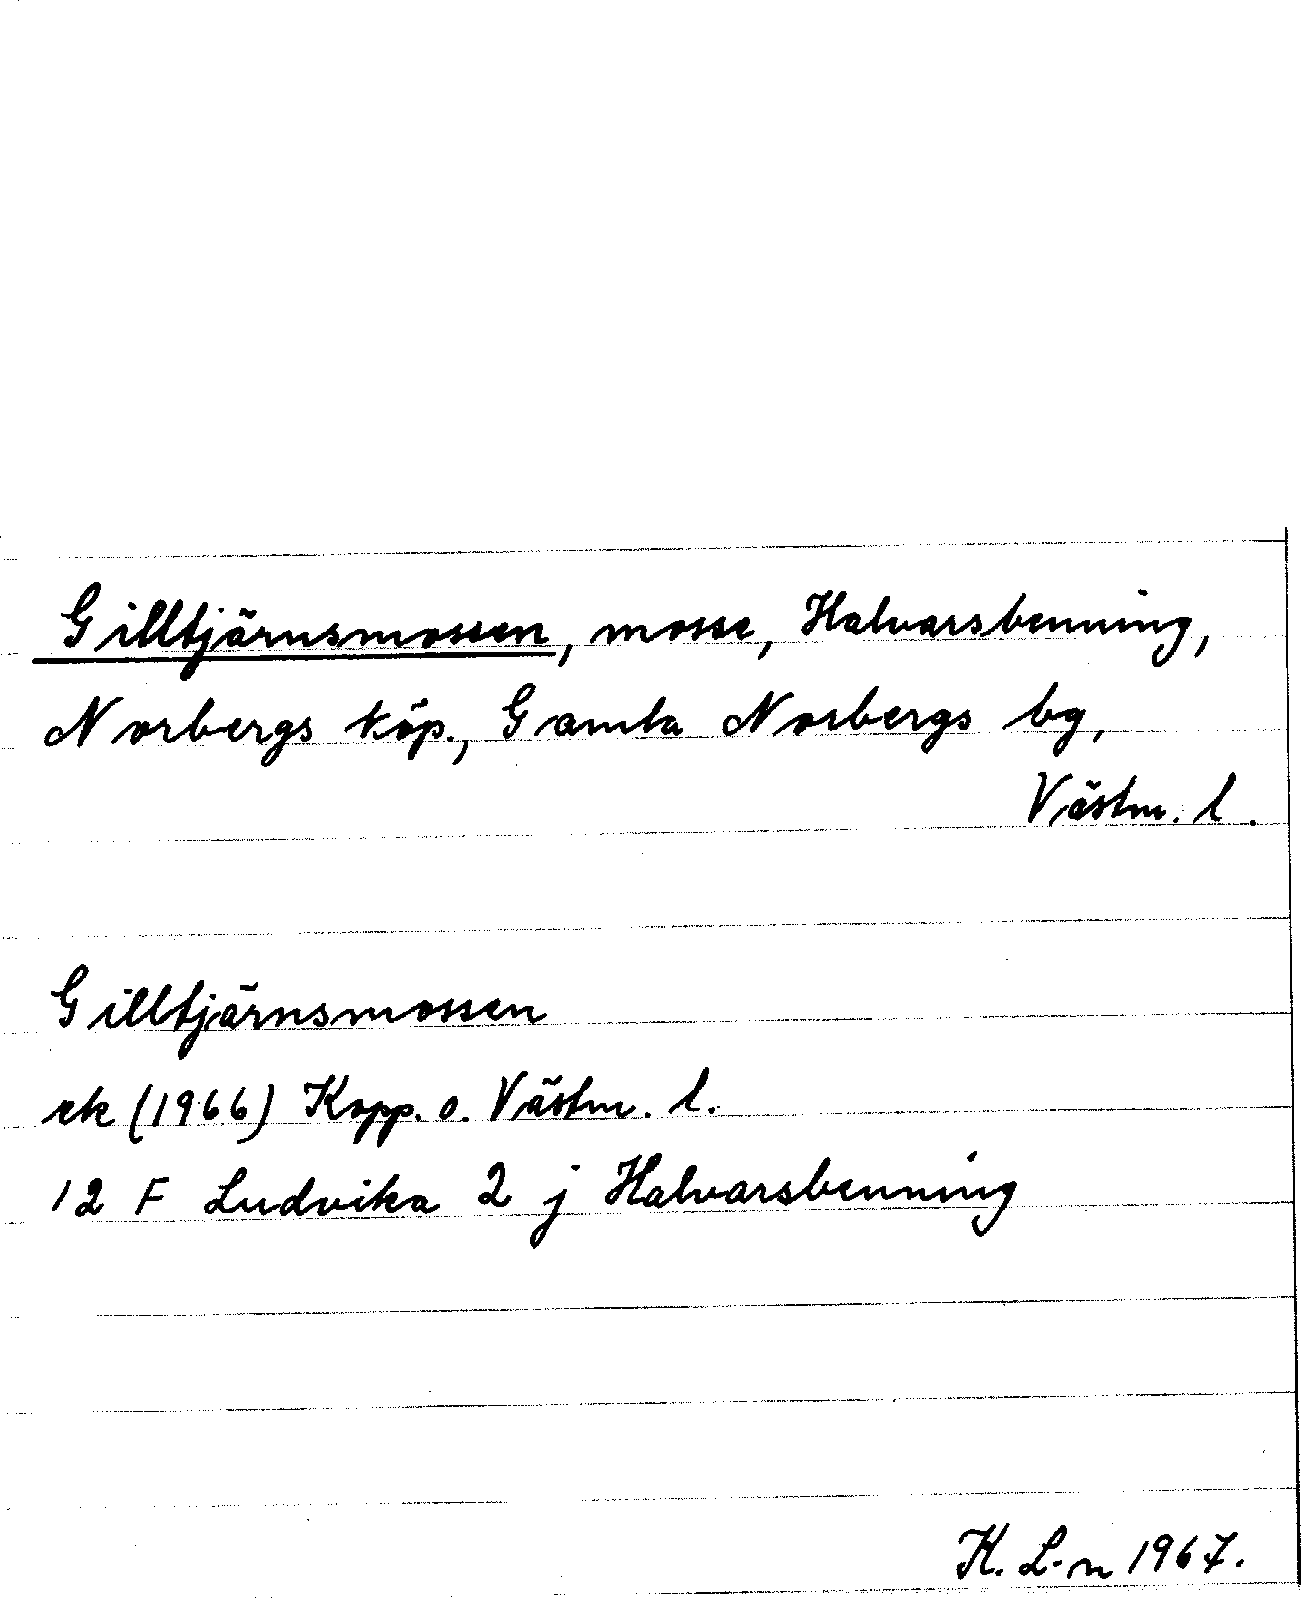 Gilltjärnsmossen, mosse, Halvarsbenning,
Norbergs köp., Gamla Norbergs bg,
Västm. l.
Gilltjärnsmossen
ek (1966) Kopp. o. Västm. l.
12 F Ludvika 2 j Halvarsbenning
K. L-n 1967.